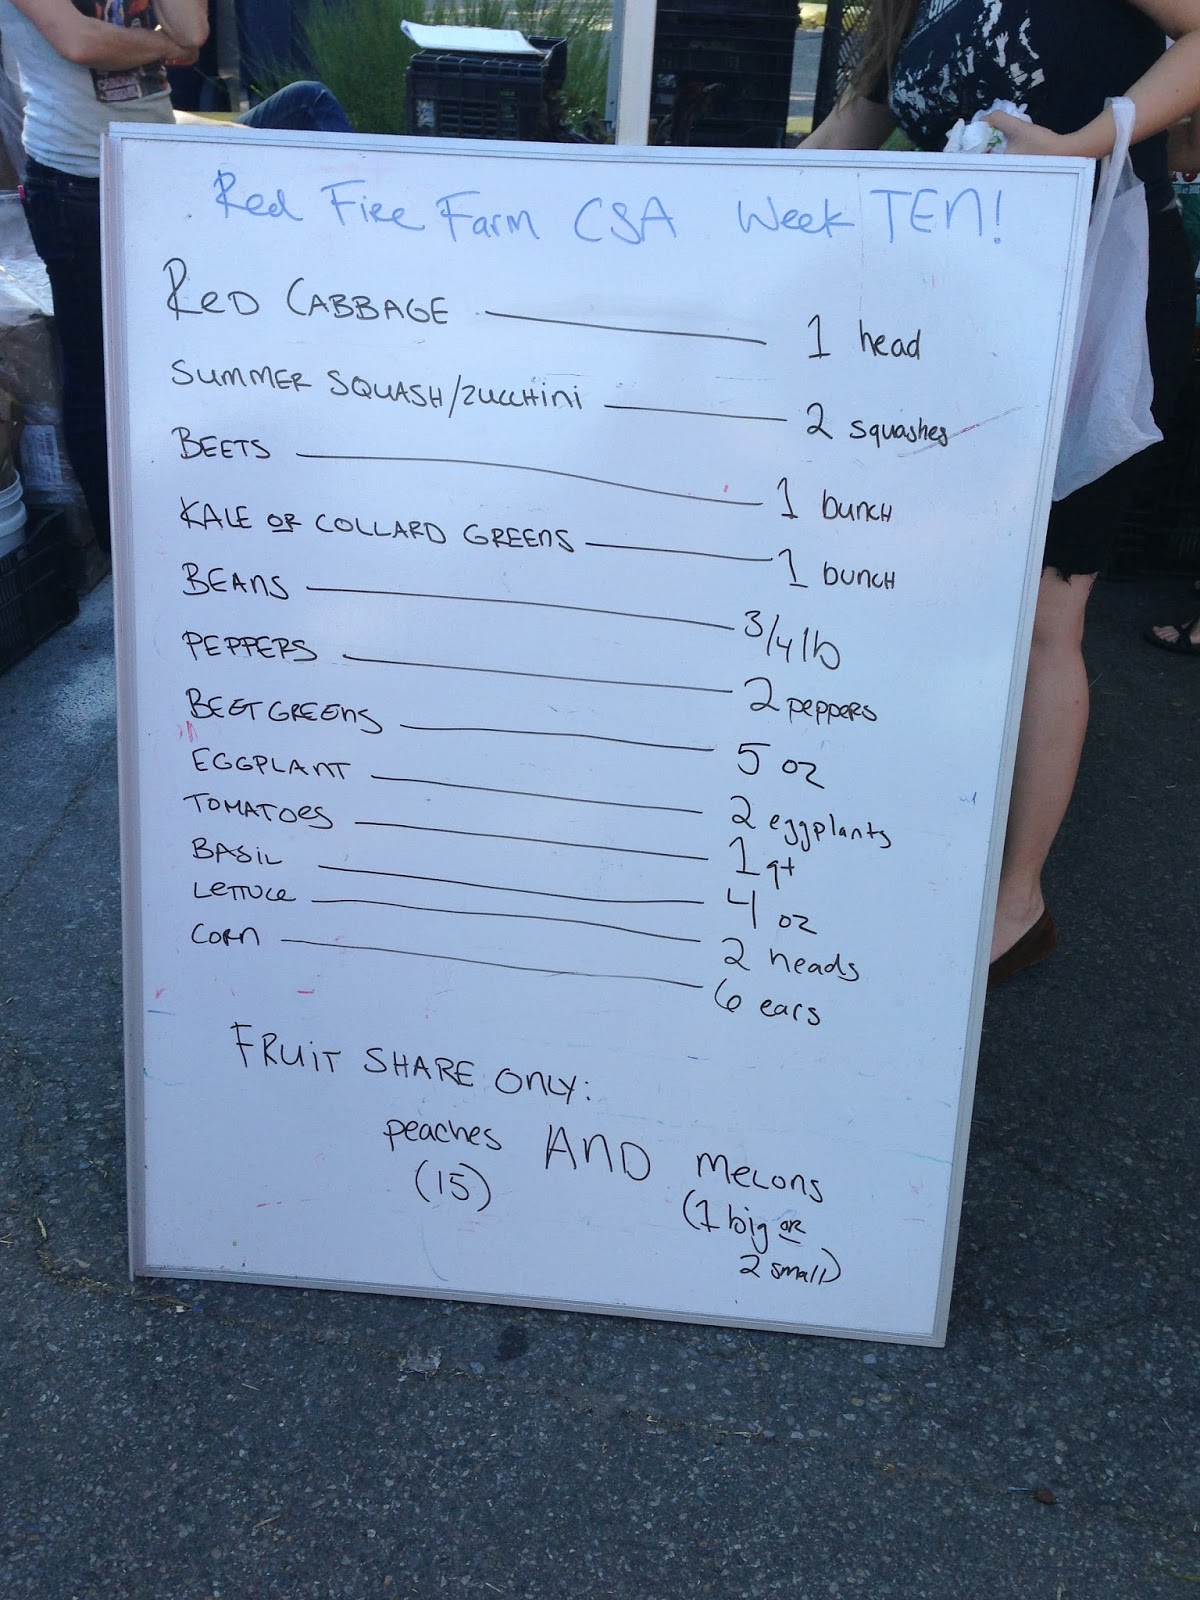 Red Fire Farm CSA Week TEN!
RED CABBAGE — 1 head
SUMMER SQUASH/ZUCCHINI — 2 squashes
BEETS — 1 bunch
KALE OR COLLARD GREENS — 1 bunch
BEANS — 3/4 lb
PEPPERS — 2 peppers
BEET GREENS — 5 oz
EGGPLANT — 2 eggplants
TOMATOES — 1 qt
BASIL — 4 oz
LETTUCE — 2 heads
CORN — 6 ears
FRUIT SHARE ONLY:
peaches AND MELONS
(15) (1 big or
2 small)